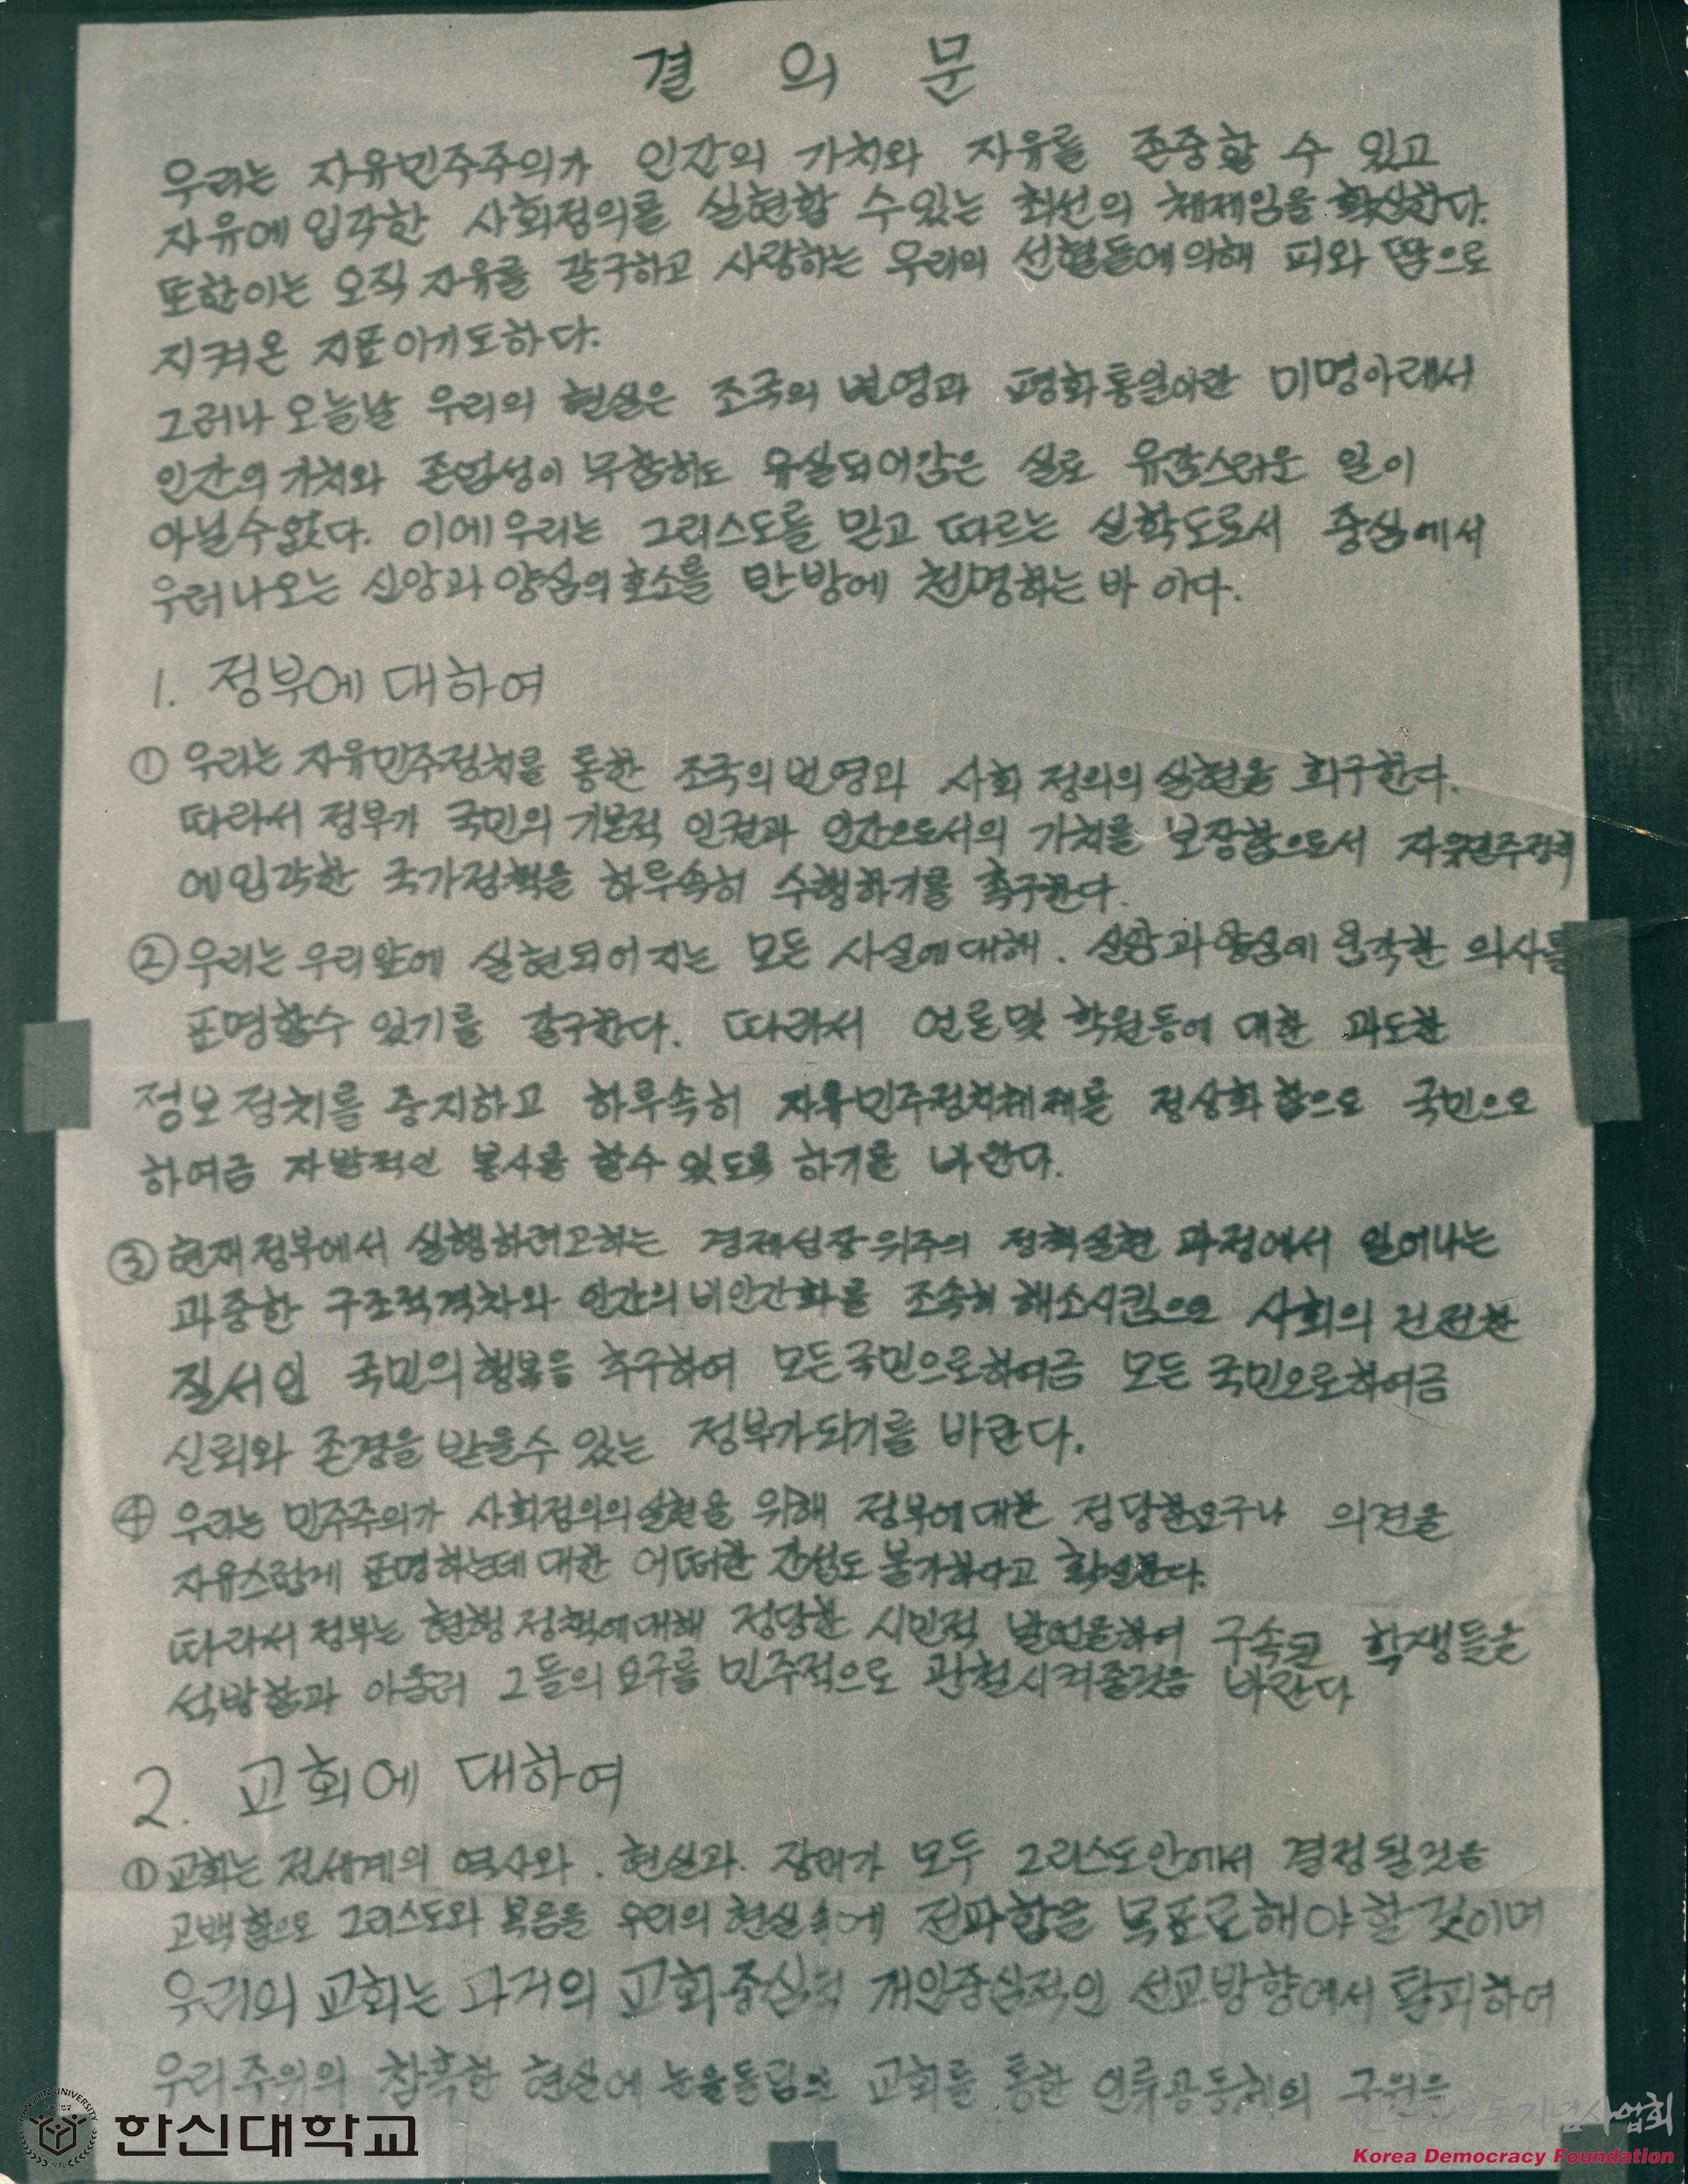 결 의 문
우리는 자유민주주의가 인간의 가치와 자유를 존중할 수 있고
자유에 입각한 사회정의를 실현할 수 있는 최선의 체제임을 확신한다.
또한 이는 오직 자유를 갈구하고 사랑하는 우리의 선현들에 의해 피와 땀으로
지켜온 지표이기도하다.
그러나 오늘날 우리의 현실은 조국의 번영과 평화통일이란 미명아래서
인간의 가치와 존엄성이 무참히도 유실되어 않은 실로 유감스러운 일이
아닐 수 없다. 이에 우리는 그리스도를 믿고 따르는 신학도로서 중심에서
우러나오는 신앙과 양심의 호소를 만방에 천명하는 바 이다.
1. 정부에 대하여
① 우리는 자유민주정치를 통한 조국의 번영과 사회 정의의 실현을 희구한다.
따라서 정부가 국민의 기본적 인권과 인간으로서의 가치를 보장함으로서 자유민주정치
에 입각한 국가정책을 하루속히 수행하기를 촉구한다.
② 우리는 우리 앞에 실현되어 지는 모든 사실에 대해. 신앙과 양심에 입각한 의사를
표명할수 있기를 갈구한다. 따라서 언론 및 학원등에 대한 과도한
정보정치를 중지하고 하루속히 자유민주정치체제를 정상화 함으로 국민으로
하여금 자발적인 봉사를 할수 있도록 하기를 바란다.
③ 현재 정부에서 실행하려고하는 경제성장위주의 정책실현 과정에서 일어나는
과중한 구조적격차와 인간의 비인간화를 조속히 해소시킴으로 사회의 건전한
질서인 국민의 행복을 추구하여 모든 국민으로하여금 모든 국민으로하여금
신뢰와 존경을 받을수 있는 정부가 되기를 바란다.
④ 우리는 민주주의가 사회정의의 실현을 위해 정부에 대한 정당한 요구나 의견을
자유스럽게 표명하는데 대한 어떠한 간섭도 불가하다고 확언한다.
따라서 정부는 현행 정책에 대해 정당한 시민적 발언을하여 구속된 학생들을
석방함과 아울러 그들의 요구를 민주적으로 관철시켜줄것을 바란다
2. 교회에 대하여
① 교회는 전세계의 역사와. 현실과. 장래가 모두 그리스도안에서 결정될것을
고백함으로 그리스도와 복음을 우리의 현실속에 전파함을 목표로 해야 할 것이며
우리의 교회는 과거의 교회중심적 개인중심적인 선교방향에서 탈피하여
우리주위의 참혹한 현실에 눈을돌림으로 교회를 통한 인류공동체의 구원을
HANSHIN UNIVERSITY
한신대학교
민주화운동기념사업회
Korea Democracy Foundation